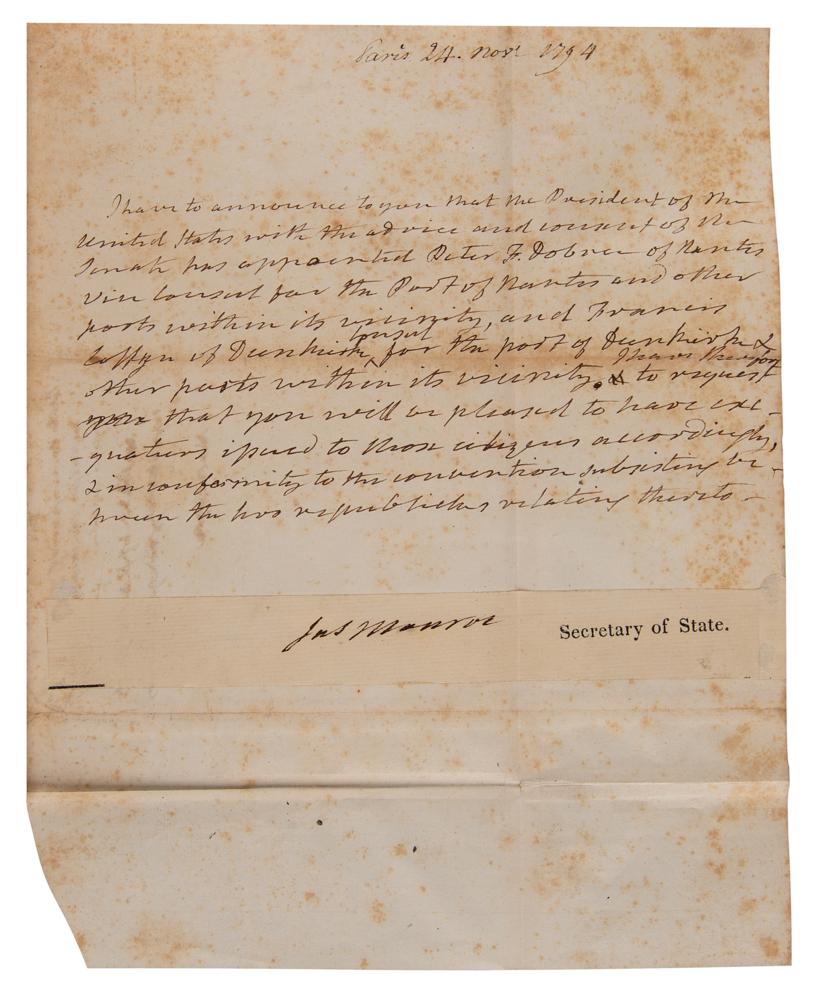 Paris 24. Novr 1794
I have to announce to you that the President of the
United States with the advice and consent of the
Senate has appointed Peter F. Dobree of Nantes
vice Consul for the Port of Nantes and other
ports within its vicinity, and Francis
Coffyn of Dunkirk, Consul for the port of Dunkirk &
other ports within its vicinity. I have therefore to request
you that you will be pleased to have exe-
-quaturs issued to those citizens accordingly,
& in conformity to the convention subsisting be-
tween the two republicks relating thereto -
Jas Monroe Secretary of State.